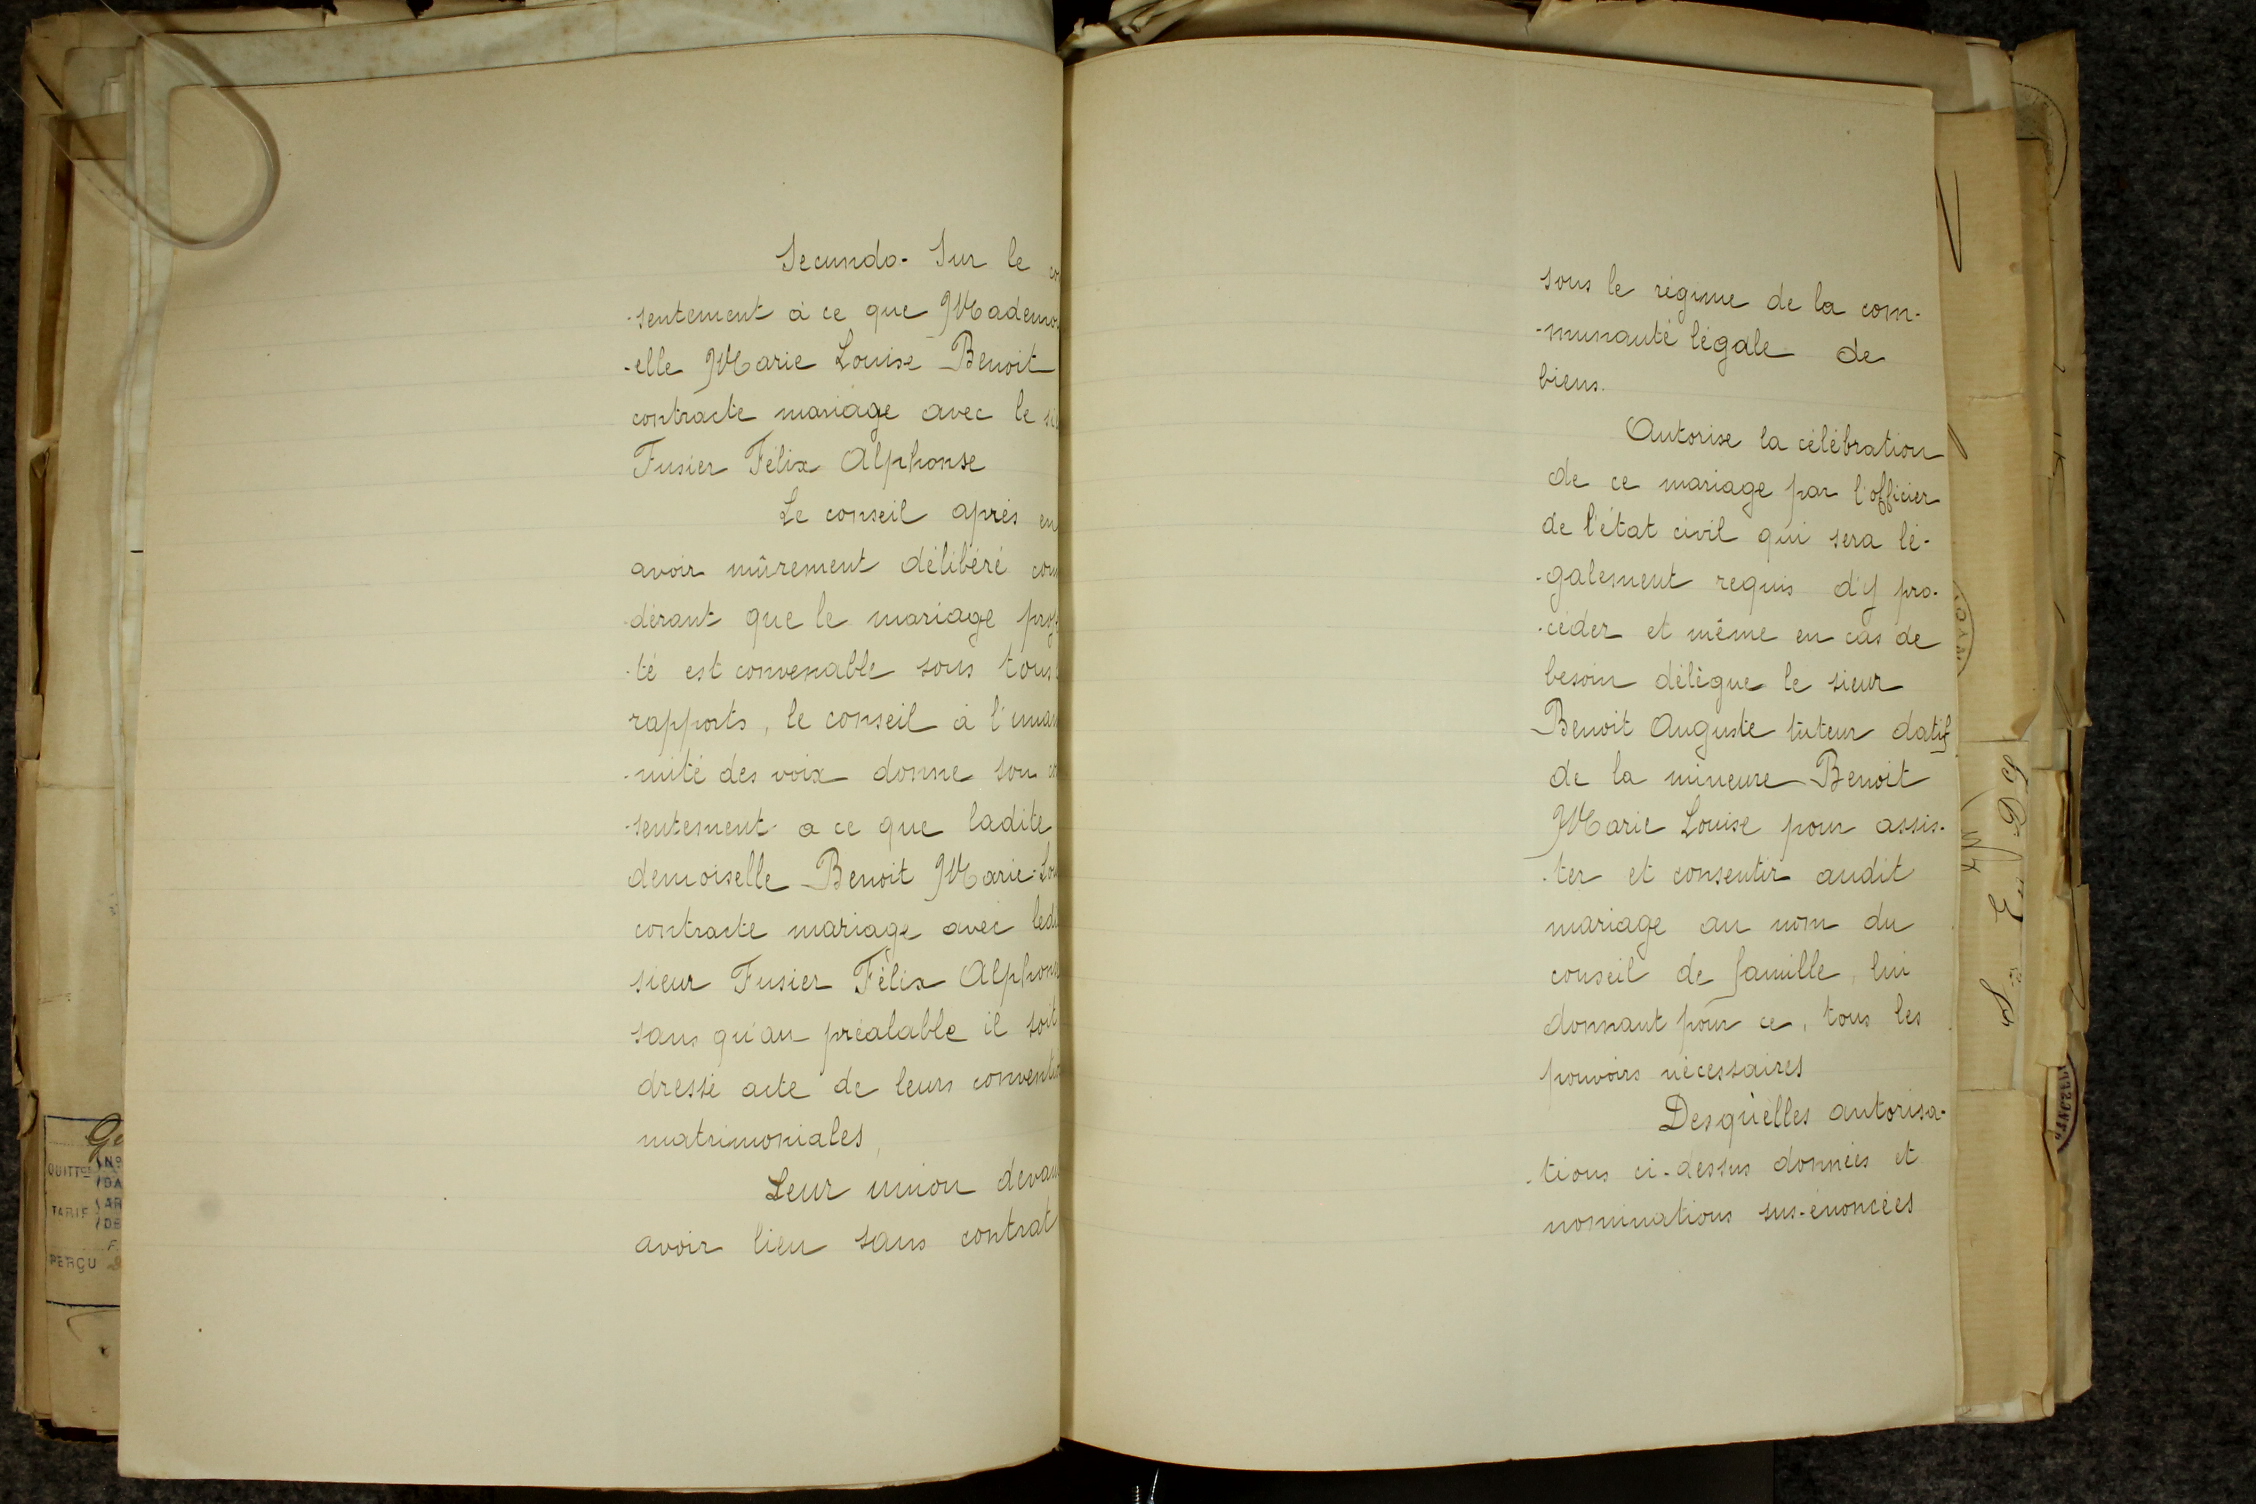 Secundo. Sur le co
-sentement à ce que Mademoi
-elle Marie Louise Benoit
contracte mariage avec le si
Fusier Félix Alphonse
Le conseil après en
avoir mûrement délibéré con
-dérant que le mariage proj
-té est convenable sous tous
rapports, le conseil à l'unan
-mité des voix donne son co
-sentement a ce que ladite
demoiselle Benoit Marie-Lou
contracte mariage avec led
sieur Fusier Félix Alphons
sans qu'au préalable il soit
dressé acte de leurs conventi
matrimoniales,
Leur union devan
avoir lieu sans contrat
sous le régime de la com-
-munauté légale de
biens.
Autorise la célébration
de ce mariage par l'officier
de l'état civil qui sera lé-
-galement requis d'y pro-
-céder et même en cas de
besoin délègue le sieur
Benoit Auguste tuteur datif
de la mineure Benoit
Marie Louise pour assis-
-ter et consentir audit
mariage au nom du
conseil de famille, lui
donnant pour ce, tous les
pouvoirs nécessaires
Desquelles autorisa-
-tions ci-dessus données et
nominations sus-énoncées
QUITTCE
TARIF
PERÇU